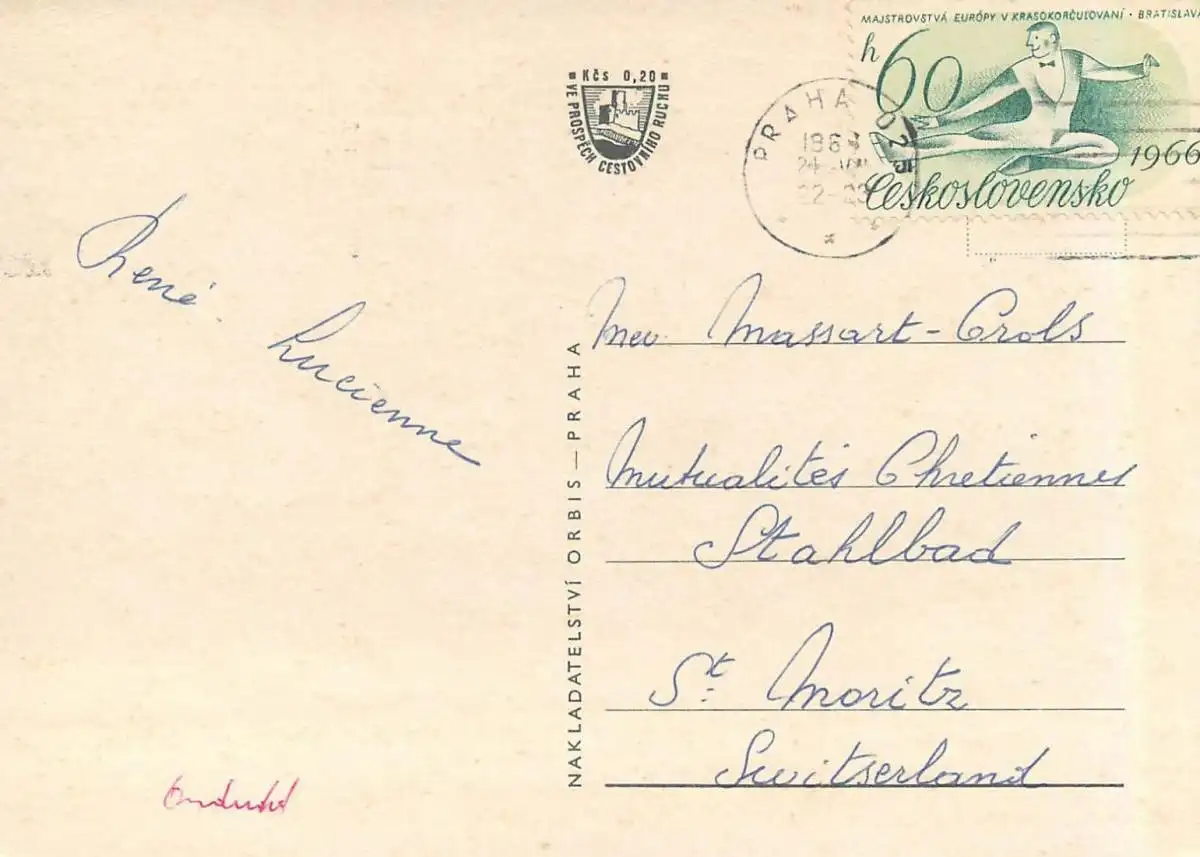 MAJSTROVSTVÁ EURÓPY V KRASOKORČUĽOVANÍ • BRATISLAVA
h 60
1966
Československo
Kčs 0,20
VE PROSPĚCH CESTOVNÍHO RUCHU
PRAHA 025
René
Lucienne
NAKLADATELSTVÍ ORBIS — PRAHA
Mev Massart-Crols
Mutualités Chretiennes
Stahlbad
St. Moritz
Switserland